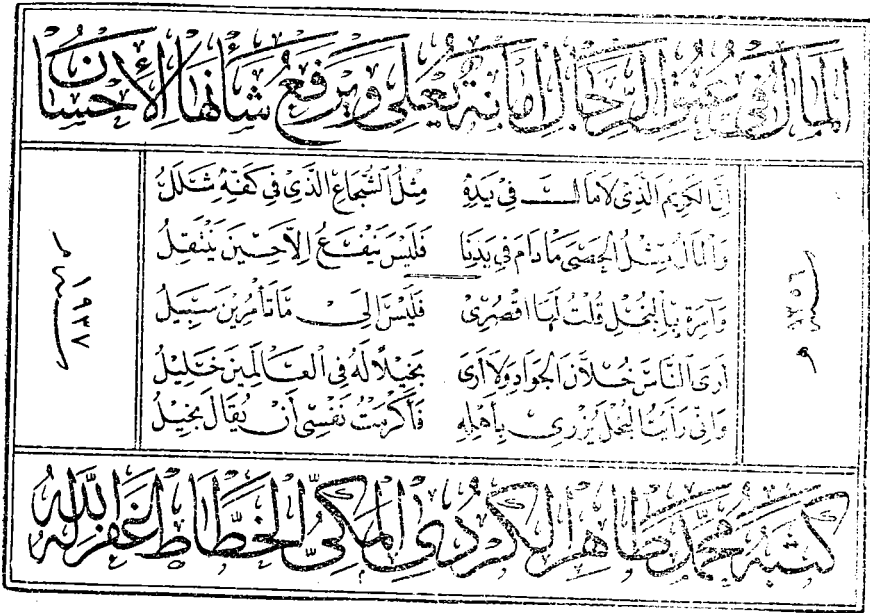 المال في عنق الرجال أمانة يعلي ويرفع شأنها الإحسان
سنة ١٣٥٦ هـ
إن الكريم الذي لا مال في يده مثل الشجاع الذي في كفه شلل
والمال مثل الحصى ما دام في يدنا فليس ينفع إلا حين ينتقل
وآمرة بالبخل قلت لها اقصري فليس إلى ما تأمرين سبيل
أرى الناس خلان الجواد ولا أرى بخيلا له في العالمين خليل
وإني رأيت البخل يزري بأهله فأكرمت نفسي أن يقال بخيل
سنة ١٩٣٧ م
كتبه محمد طاهر الكردي المكي الخطاط غفر الله له